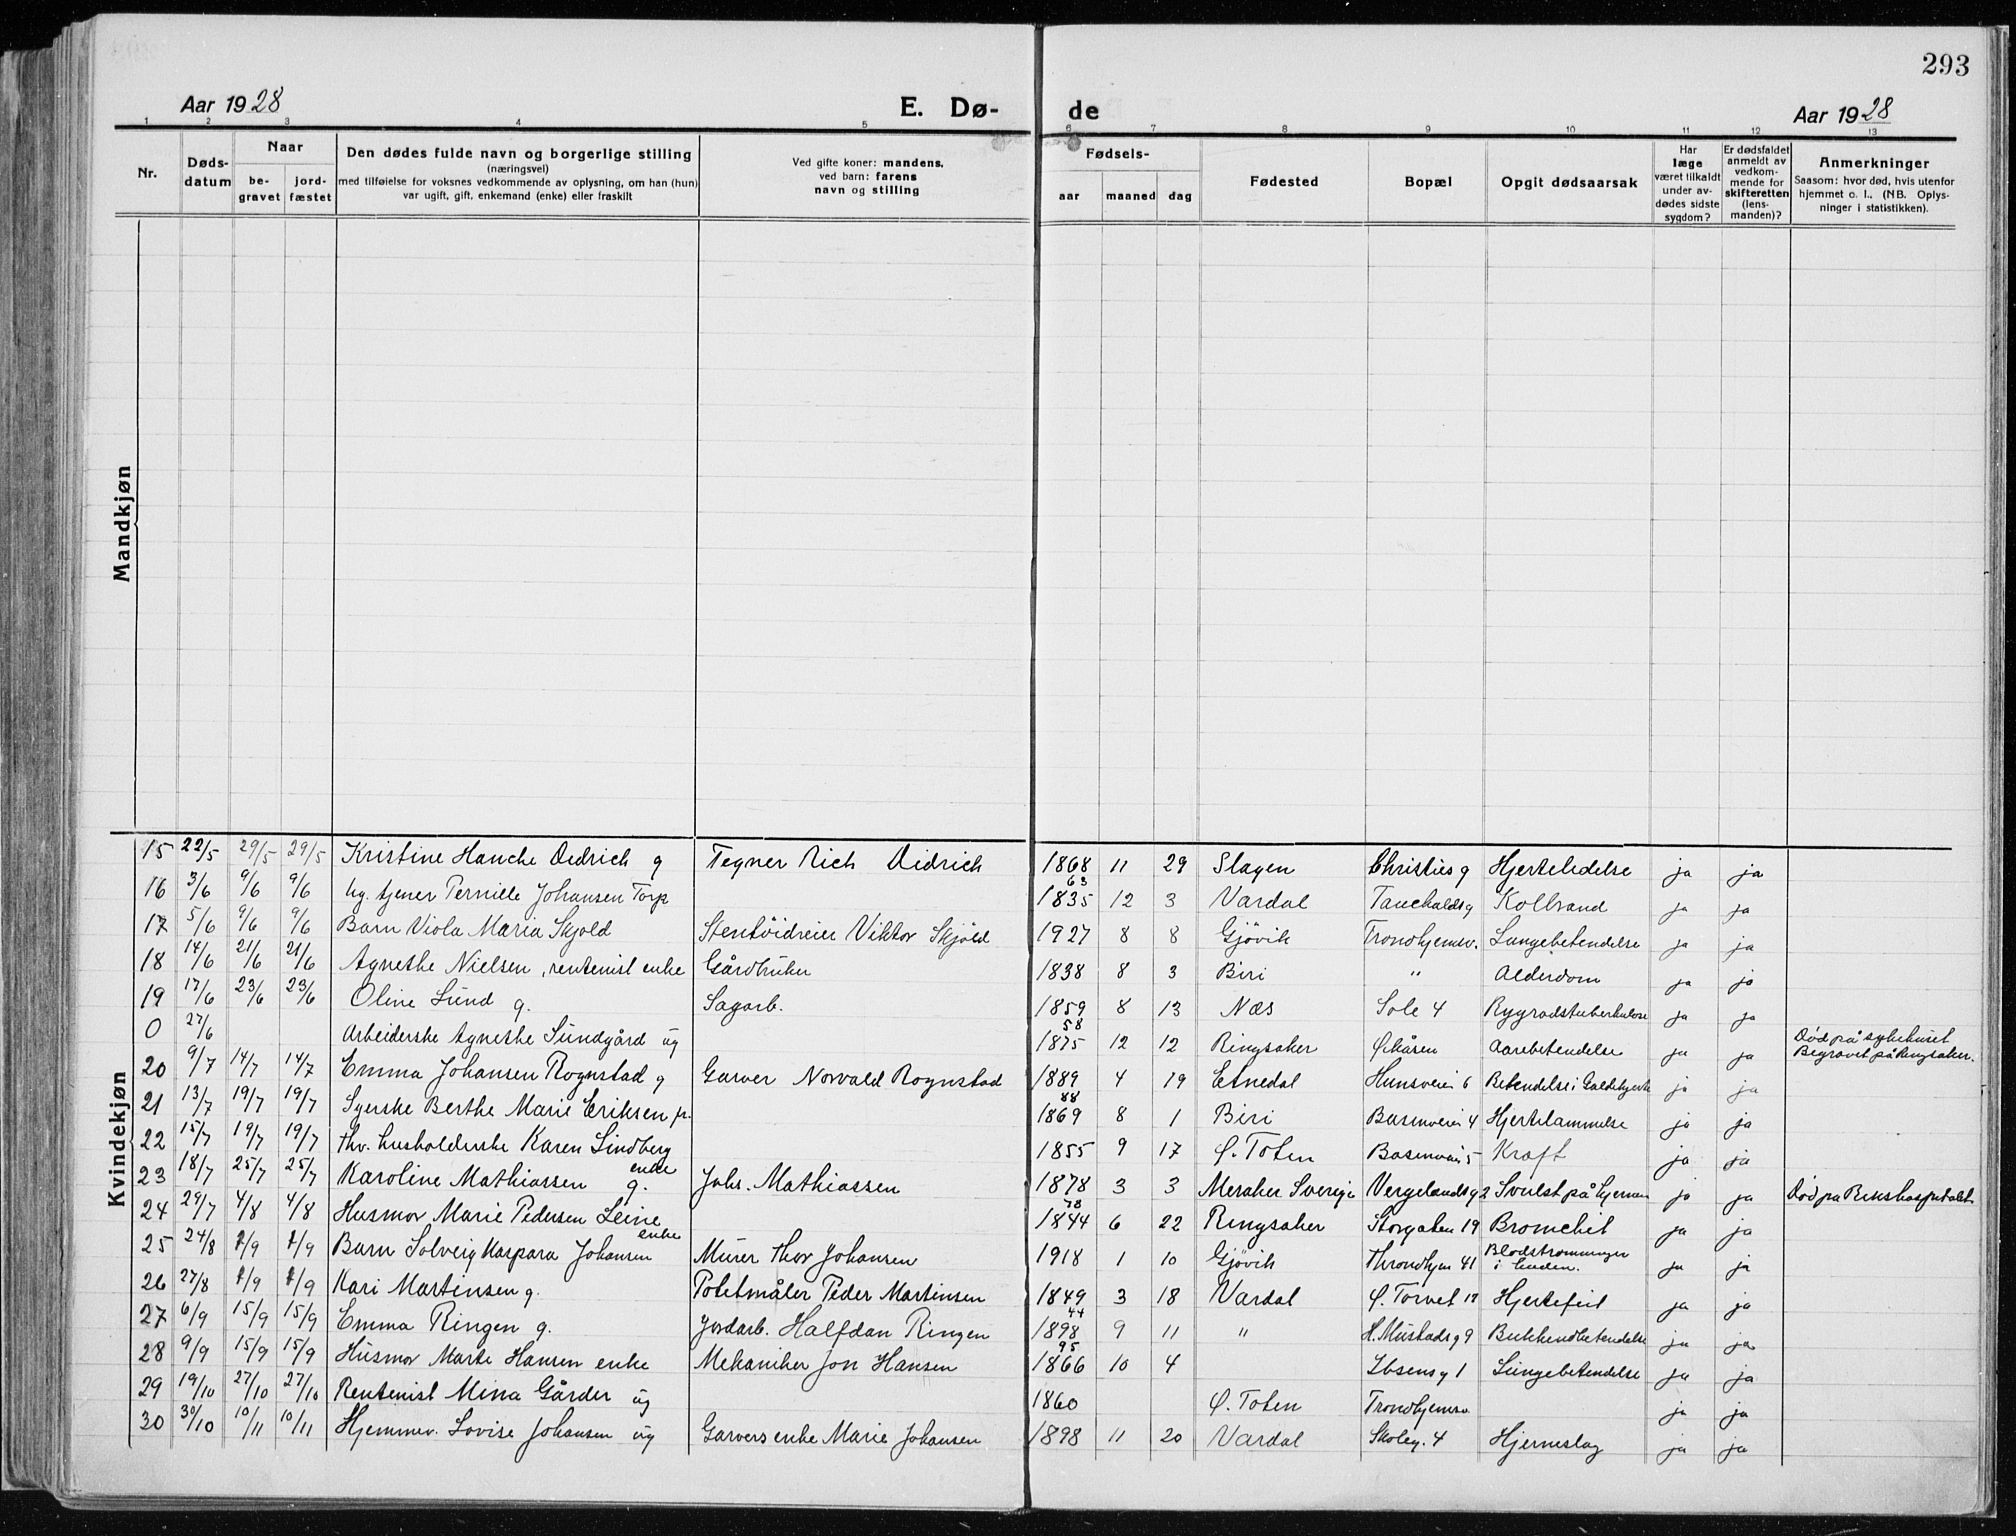 293
Aar 1928 E. Dø- de Aar 1928
1 2 3 4 5 6 7 8 9 10 11 12 13
Nr. Døds-datum Naar be-gravet jord-fæstet Den dødes fulde navn og borgerlige stilling (næringsvei) med tilføielse for voksnes vedkommende av oplysning, om han (hun) var ugift, gift, enkemand (enke) eller fraskilt Ved gifte koner: mandens. ved barn: farens navn og stilling Fødsels- aar maaned dag Fødested Bopæl Opgit dødsaarsak Har læge været tilkaldt under av-dødes sidste sygdom? Er dødsfaldet anmeldt av vedkom-mende for skifteretten (lens-manden)? Anmerkninger Saasom: hvor død, hvis utenfor hjemmet o. l., (NB. Oplys-ninger i statistikken).
Mandkjøn
Kvindekjøn
15 22/5 29/5 29/5 Kristine Hanche Didrich g Tegner Rich Didrich 1868 11 29 Slagen Christies g Hjertelidelse ja ja
63
16 3/6 9/6 9/6 hg. tjener Pernille Johansen Torp 1835 12 3 Vardal Kolbrand ja ja
17 5/6 9/6 9/6 Barn Viola Maria Skjöld Viktor Skjöld 1927 8 8 Gjövik Trondhjemsv. Lungebetendelse ja ja
18 14/6 21/6 21/6 Agnethe Nielsen, rentenist enke Gårdbruker 1838 8 3 Biri " Alderdom ja ja
19 17/6 23/6 23/6 Oline Lund g. Sagarb. 1859 8 13 Næs Sole 4 Rygradstuberkulose ja ja
58
0 27/6 Arbeiderske Agnethe Sundgård ug 1875 12 12 Ringsaker Aarebetendelse ja ja Död på sykehuset Begravet på Ringsaker.
20 9/7 14/7 14/7 Emma Johansen Rognstad g Garver Norvald Rognstad 1889 4 19 Etnedal Hunsveien 6 Betendelse i ja ja
88
21 13/7 19/7 19/7 Syerske Berthe Marie Eriksen 1869 8 1 Biri 4 Hjertelammelse ja ja
22 15/7 19/7 19/7 fhv. husholderske Karen Lindberg 1855 9 17 Ø. Toten 5 Kræft ja ja
enke
23 18/7 25/7 25/7 Karoline Mathiassen g. Johs. Mathiassen 1878 3 3 Meraker Sverige Vergelandsg 2 Svulst på hjernen ja ja Död på Rikshospitalet
78
24 29/7 4/8 4/8 Husmor Marie Pedersen Leine enke 1844 6 22 Ringsaker Storgaten 19 Bronchit ja ja
25 24/8 1/9 1/9 Barn Solveig Kaspara Johansen Murer Thor Johansen 1918 1 10 Gjövik Throndhjem 41 ja ja
26 27/8 1/9 1/9 Kari Martinsen g. Potetmåler Peder Martinsen 1849 3 18 Vardal Ø. Torvet 17 Hjertefeil ja ja
44
27 6/9 15/9 15/9 Emma Ringen g. Jordarb. Halfdan Ringen 1898 9 11 " H. Mustadsg 9 Bukhindbetendelse ja ja
95
28 9/9 15/9 15/9 Husmor Marte Hansen enke Mekaniker Jon Hansen 1866 10 4 Ibsensg 1 Lungebetendelse ja ja
29 19/10 27/10 27/10 Rentenist Mina Gårder ug 1860 Ø. Toten Trondhjemsv ja ja
30 30/10 10/11 10/11 Hjemmev. Lovise Johansen ug Garvers enke Marie Johansen 1898 11 20 Vardal Skoleg. 4 Hjerneslag ja ja